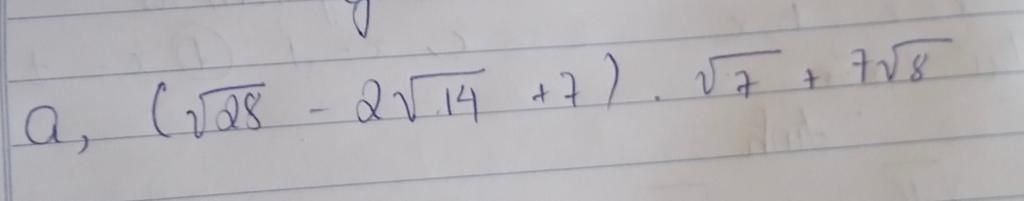 a, (√28 - 2√14 + 7) . √7 + 7√8